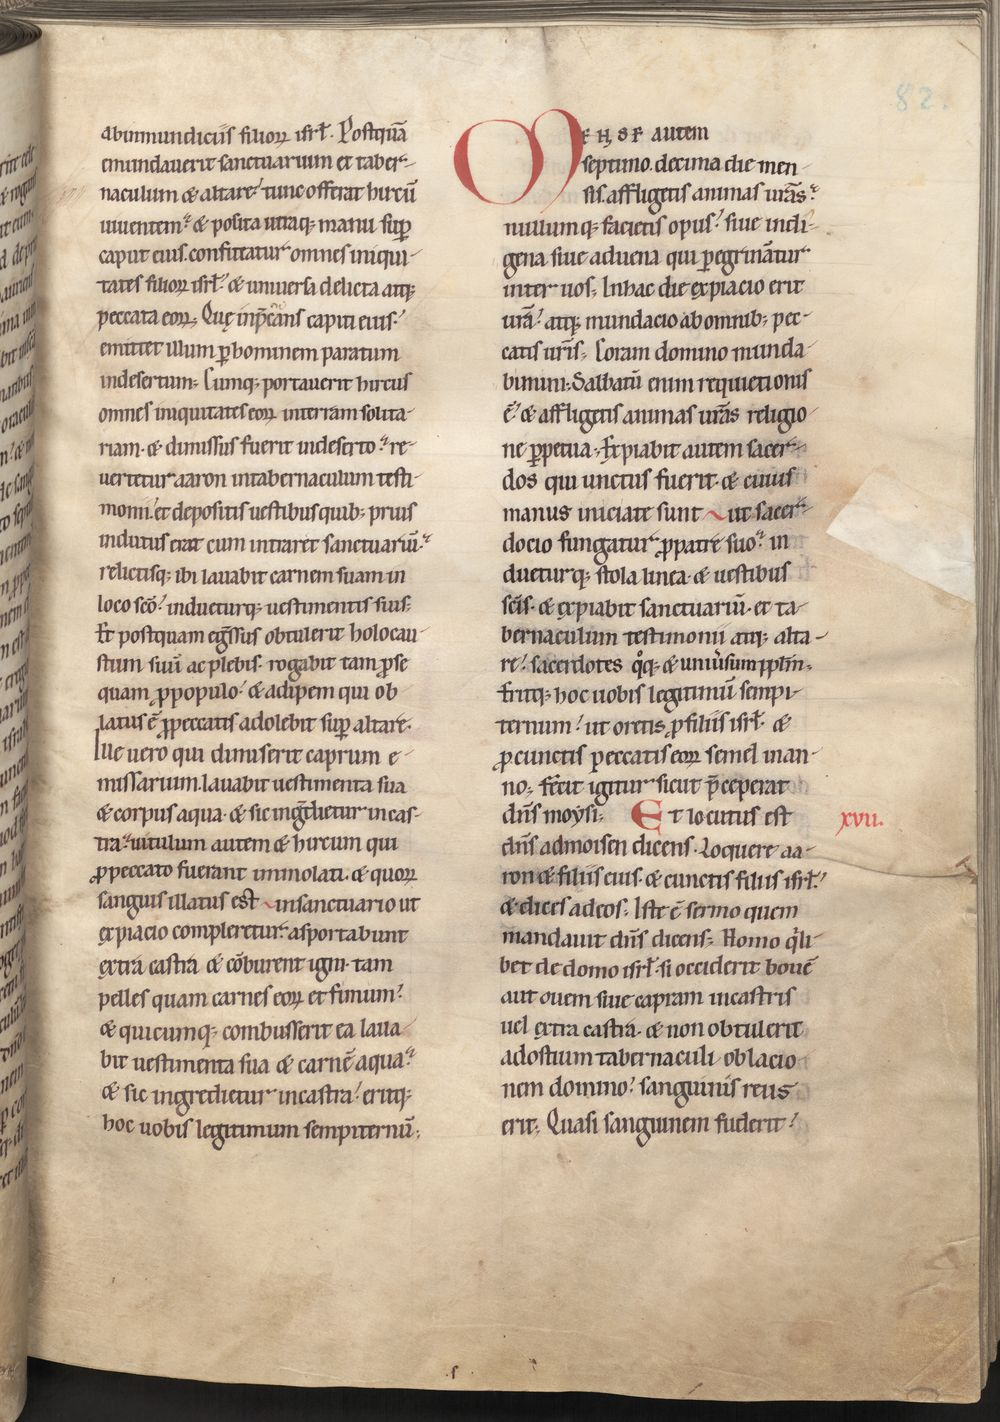 82.
abinmundiciis filiorꝝ isrł. Postquā
emundauerit sanctuarium et taber-
naculum & altare: tunc offerat hircū
uiuentem. & posita utraq; manu sup̄
caput eius. confiteatur omnes iniqui-
tates filiorꝝ isrł. & uniuersa delicta atq;
peccata eorꝝ. Quę inp̄cans capiti eius.
emittet illum ꝑ hominem paratum
indesertum. Cumq; portauerit hircus
omnes iniquitates eorꝝ interram solita-
riam. & dimissus fuerit indeserto. re-
uertetur aaron intabernaculum testi-
monii. et depositis uestibus quib; prius
indutus erat cum intraret sanctuariū.
relictisq; ibi lauabit carnem suam in
loco scō. indueturq; uestimentis suis.
Et postquam eg̃ssus obtulerit holocau-
stum suū ac plebis. rogabit tam ꝓ se
quam ꝓ populo. & adipem qui ob
latus ē ꝓ peccatis adolebit sup̄ altare.
Ille uero qui dimiserit caprum e-
missarium. lauabit uestimenta sua
& corpus aqua. & sic ingͥdietur incas-
tra. uitulum autem & hircum qui
ꝓ peccato fuerant immolati. & quorꝝ
sanguis illatus est insanctuario ut
expiacio compleretur. asportabunt
extra castra & cōburent igni. tam
pelles quam carnes eorꝝ et fimum.
& quicumq; combusserit ea laua-
bit uestimenta sua & carnē aqua.
& sic ingredietur incastra. eritq;
hoc uobis legitimum sempiternū.
MENSE autem
septimo. decima die men-
sis. affligetis animas urās.
nullumq; facietis opus. siue indi-
gena siue aduena qui peregrinatur
inter uos. Inhac die expiacio erit
urā. atq; mundacio abomnib; pec-
catis uris. Coram domino munda-
bimini. Sabbatū enim requietionis
ē. & affligetis animas urās religio-
ne ꝑpetua. Expiabit autem sacer-
dos qui unctus fuerit. & cuius
manus iniciate sunt ut sacer-
docio fungatur ꝓ patre suo. in
dueturq; stola linea. & uestibus
scis. & expiabit sanctuariū. et ta-
bernaculum testimonii atq; alta-
re. sacerdotes qͦq; & uniūsum pplm.
Eritq; hoc uobis legitimū sempi-
ternum. ut oretis ꝓ filiis isrł. &
ꝓ cunctis peccatis eorꝝ semel inan-
no. fecit igitur sicut p̄ceperat
dñs moysi. Et locutus est
xvii.
dñs admoisen dicens. Loquere aa-
ron & filiis eius. & cunctis filiis isrł.
& dices adeos. Iste ē sermo quem
mandauit dñs dicens. Homo qͥli-
bet de domo isrł. si occiderit bouē
aut ouem siue capram incastris
uel extra castra. & non obtulerit
adostium tabernaculi oblacio
nem domino. sanguinis reus
erit. Quasi sanguinem fuderit.